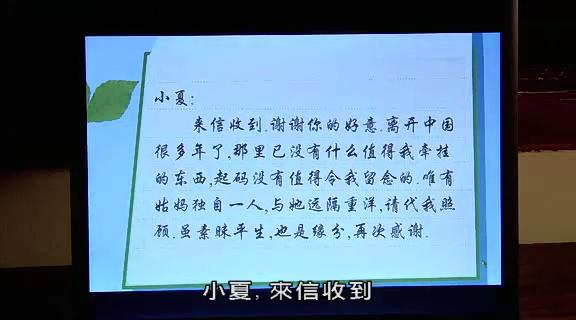 小夏:
来信收到.谢谢你的好意.离开中国
很多年了,那里已没有什么值得我牵挂
的东西,起码没有值得令我留念的.唯有
姑妈独自一人,与她远隔重洋,请代我照
顾.虽素昧平生,也是缘分,再次感谢.
小夏,來信收到